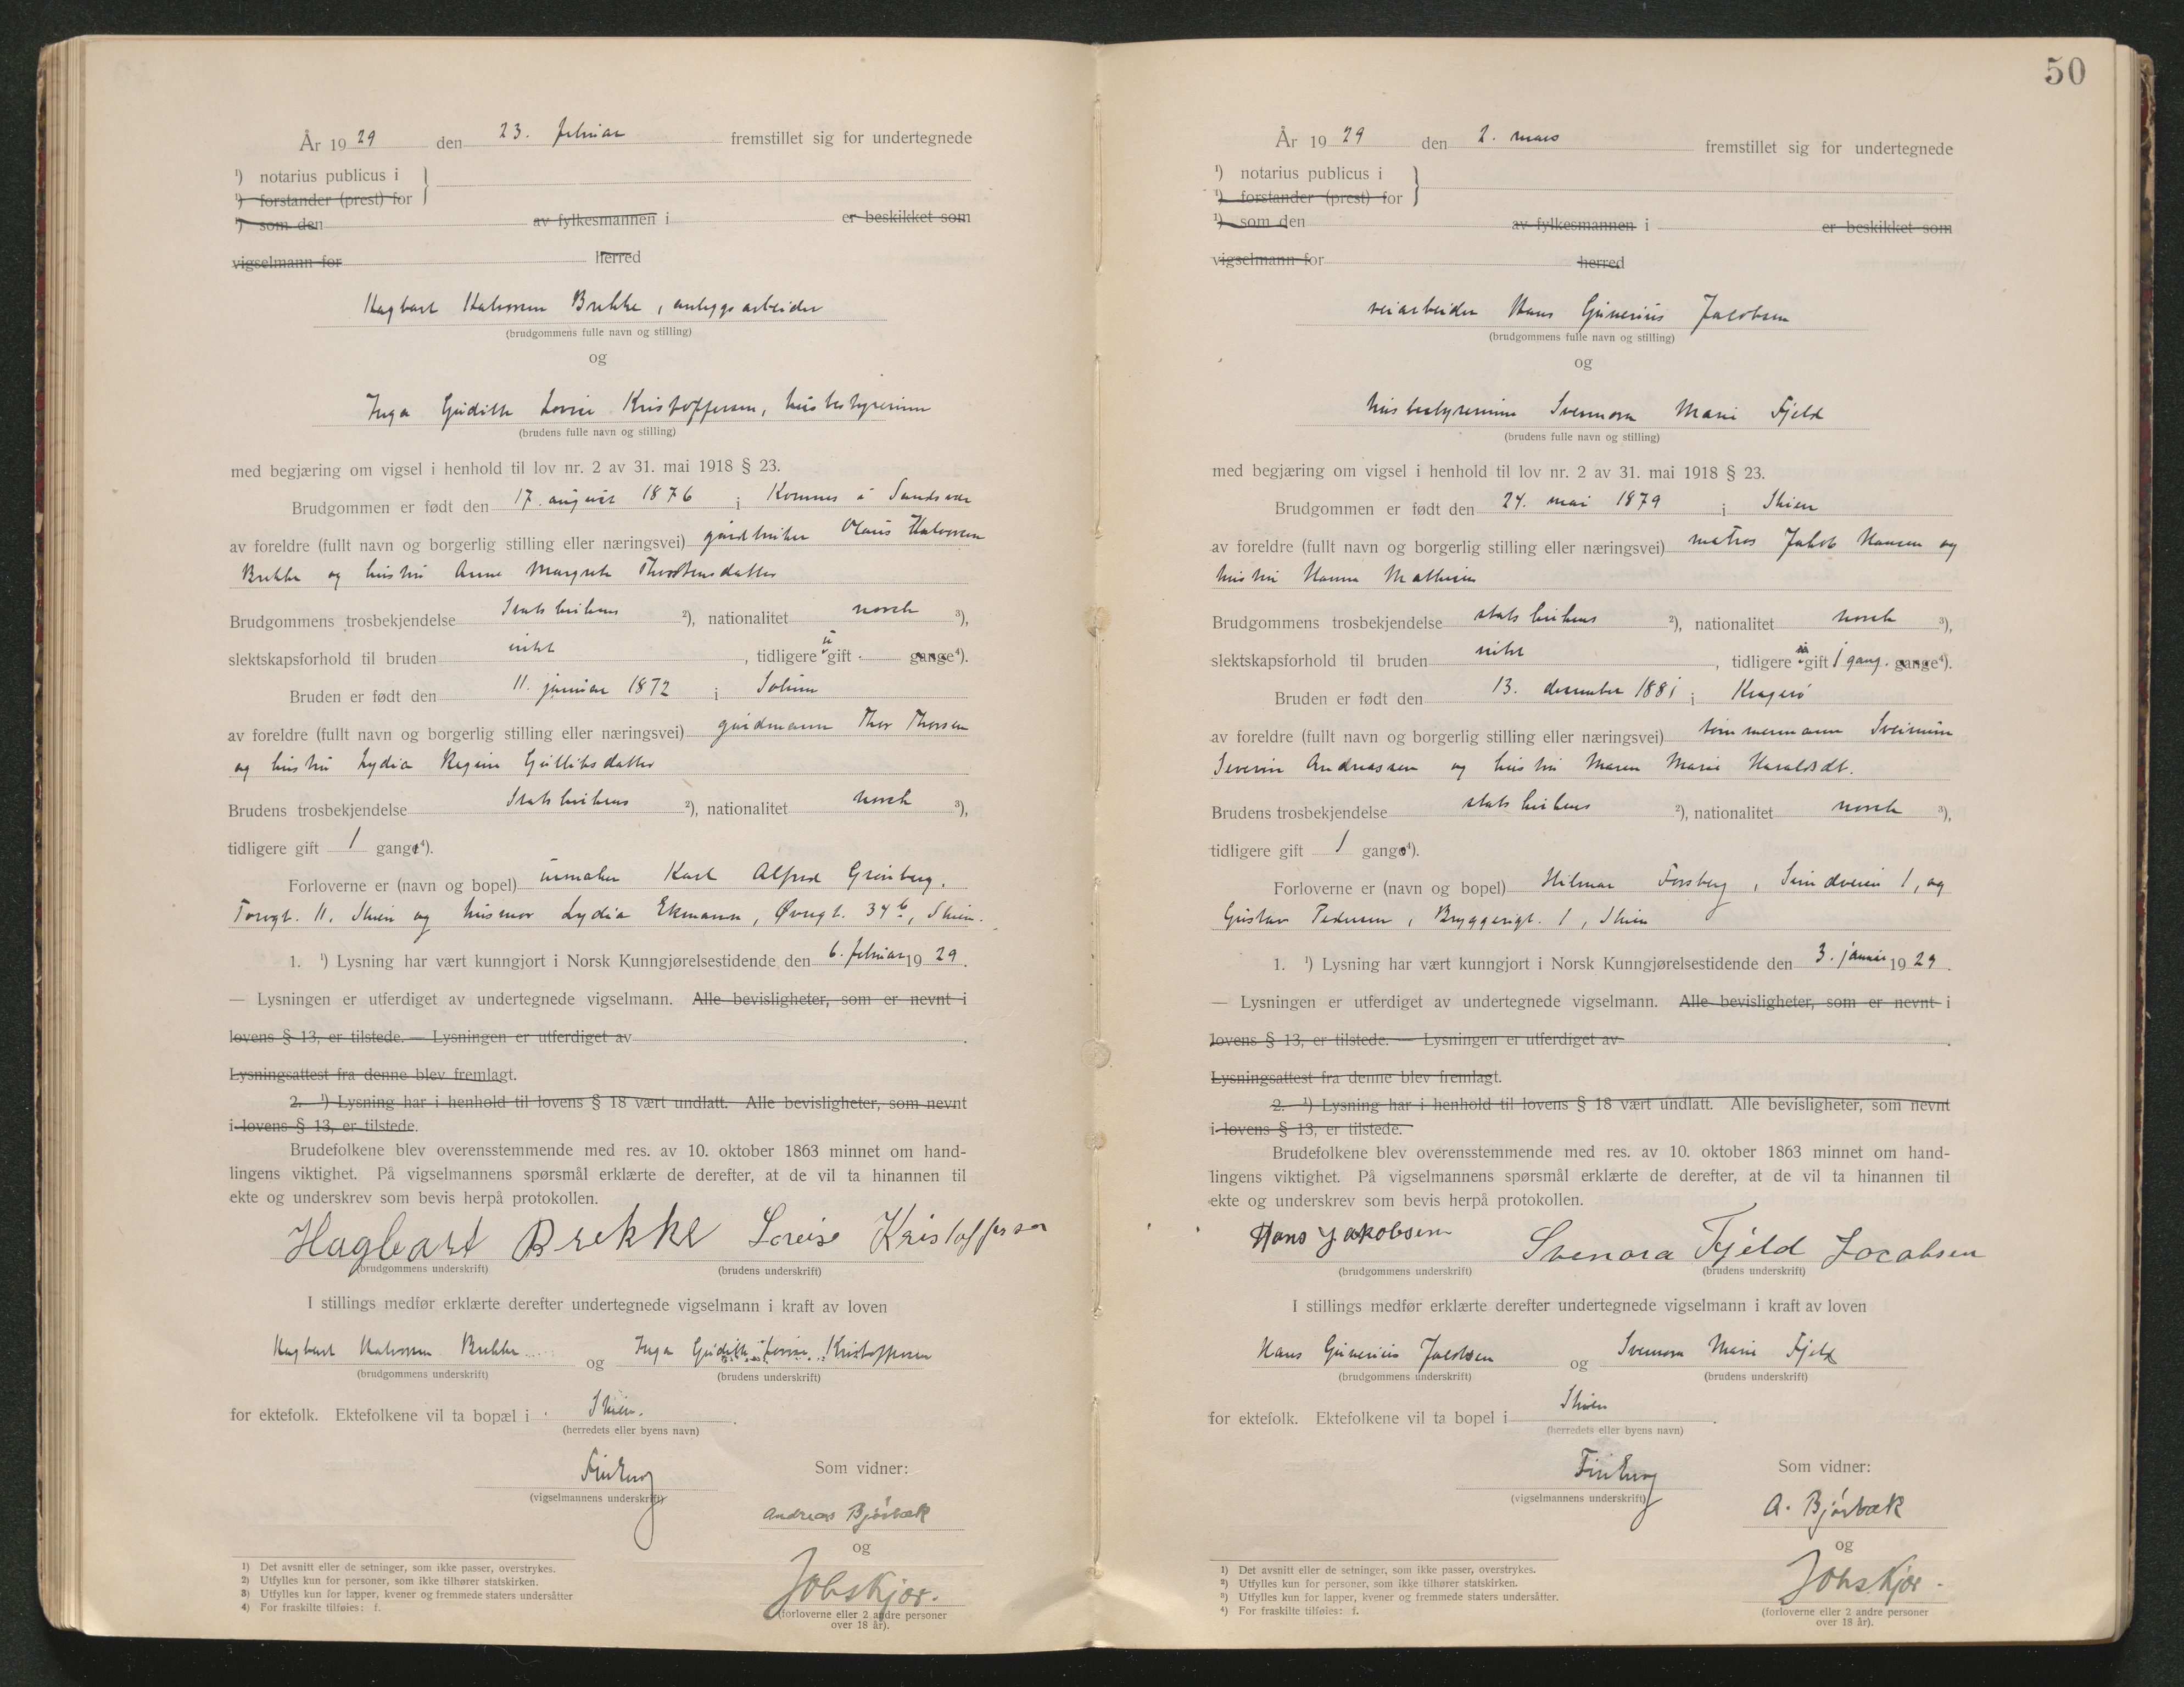 År 1929 den 23. februar fremstillet sig for undertegnede
1) notarius publicus i
1) forstander (prest) for
1) som den av fylkesmannen i er beskikket som
vigselmann for herred
Hagbart Halvorsen Brekke, anleggsarbeider
(brudgommens fulle navn og stilling)
og
Inga Gudithe Lovise Kristoffersen, husbestyrerinne
(brudens fulle navn og stilling)
med begjæring om vigsel i henhold til lov nr. 2 av 31. mai 1918 § 23.
Brudgommen er født den 17. august 1876 i Komnes i Sandsvær
av foreldre (fullt navn og borgerlig stilling eller næringsvei) gårdbruker Olaus Halvorsen
Brekke og hustru Anne Margrete Thorstensdatter
Brudgommens trosbekjendelse Statskirkens 2), nationalitet norsk 3),
slektskapsforhold til bruden intet, tidligere ugift - gange 4).
Bruden er født den 11. januar 1872 i Solum
av foreldre (fullt navn og borgerlig stilling eller næringsvei) gårdmann Thor Thorsen
og hustru Lydia Regine Gulliksdatter
Brudens trosbekjendelse Statskirkens 2), nationalitet norsk 3),
tidligere gift 1 gang 4).
Forloverne er (navn og bopel) urmaker Karl Alfred Grønberg,
Torvgt. 11, Skien og husmor Lydia Ekmann, Øvregt. 34 b, Skien.
1. 1) Lysning har vært kunngjort i Norsk Kunngjørelsestidende den 6. februar 1929.
— Lysningen er utferdiget av undertegnede vigselmann. Alle bevisligheter, som er nevnt i
lovens § 13, er tilstede. — Lysningen er utferdiget av .
Lysningsattest fra denne blev fremlagt.
2. 1) Lysning har i henhold til lovens § 18 vært undlatt. Alle bevisligheter, som nevnt
i lovens § 13, er tilstede.
Brudefolkene blev overensstemmende med res. av 10. oktober 1863 minnet om hand-
lingens viktighet. På vigselmannens spørsmål erklærte de derefter, at de vil ta hinannen til
ekte og underskrev som bevis herpå protokollen.
Hagbart Brekke Loveise Kristoffersen
(brudgommens underskrift) (brudens underskrift)
I stillings medfør erklærte derefter undertegnede vigselmann i kraft av loven
Hagbart Halvorsen Brekke og Inga Gudithe Lovise Kristoffersen
(brudgommens underskrift) (brudens underskrift)
for ektefolk. Ektefolkene vil ta bopæl i Skien.
(herredets eller byens navn)
Som vidner:
(vigselmannens underskrift)
Andreas Bjørbæk
og
1) Det avsnitt eller de setninger, som ikke passer, overstrykes.
2) Utfylles kun for personer, som ikke tilhører statskirken.
3) Utfylles kun for lapper, kvener og fremmede staters undersåtter
4) For fraskilte tilføies: f.
(forloverne eller 2 andre personer
over 18 år).
50
År 1929 den 2. mars fremstillet sig for undertegnede
1) notarius publicus i
1) forstander (prest) for
1) som den av fylkesmannen i er beskikket som
vigselmann for herred
veiarbeider Hans Gunerius Jacobsen
(brudgommens fulle navn og stilling)
og
husbestyrerinne Svennora Marie Fjeld
(brudens fulle navn og stilling)
med begjæring om vigsel i henhold til lov nr. 2 av 31. mai 1918 § 23.
Brudgommen er født den 24. mai 1879 i Skien
av foreldre (fullt navn og borgerlig stilling eller næringsvei) matros Jakob Hansen og
hustru Hanna Mathisen
Brudgommens trosbekjendelse statskirkens 2), nationalitet norsk 3),
slektskapsforhold til bruden intet, tidligere gift 1 gang. gange 4).
Bruden er født den 13. desember 1881 i Kragerø
av foreldre (fullt navn og borgerlig stilling eller næringsvei) tømmermann
Severin Andreassen og hustru Maren Marie Haraldsdt.
Brudens trosbekjendelse statskirkens 2), nationalitet norsk 3),
tidligere gift 1 gang 4).
Forloverne er (navn og bopel) Hilmar Forsberg, Sundveien 1, og
Gustav Pedersen, Bryggerigt. 1, Skien
1. 1) Lysning har vært kunngjort i Norsk Kunngjørelsestidende den 3. januar 1929.
— Lysningen er utferdiget av undertegnede vigselmann. Alle bevisligheter, som er nevnt i
lovens § 13, er tilstede. — Lysningen er utferdiget av .
Lysningsattest fra denne blev fremlagt.
2. 1) Lysning har i henhold til lovens § 18 vært undlatt. Alle bevisligheter, som nevnt
i lovens § 13, er tilstede.
Brudefolkene blev overensstemmende med res. av 10. oktober 1863 minnet om hand-
lingens viktighet. På vigselmannens spørsmål erklærte de derefter, at de vil ta hinannen til
ekte og underskrev som bevis herpå protokollen.
Hans Jakobsen Svenora Fjeld Jacobsen
(brudgommens underskrift) (brudens underskrift)
I stillings medfør erklærte derefter undertegnede vigselmann i kraft av loven
Hans Gunerius Jacobsen og Svennora Marie Fjeld
(brudgommens underskrift) (brudens underskrift)
for ektefolk. Ektefolkene vil ta bopel i Skien.
(herredets eller byens navn)
Som vidner:
(vigselmannens underskrift)
A. Bjørbæk
og
1) Det avsnitt eller de setninger, som ikke passer, overstrykes.
2) Utfylles kun for personer, som ikke tilhører statskirken.
3) Utfylles kun for lapper, kvener og fremmede staters undersåtter.
4) For fraskilte tilføies: f.
(forloverne eller 2 andre personer
over 18 år).